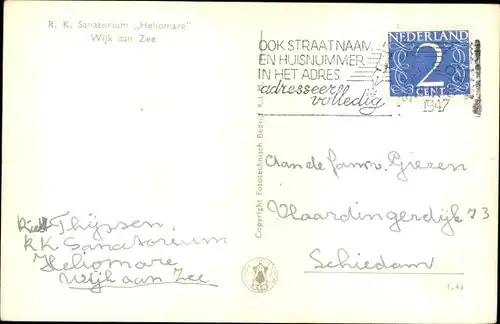 R. K. Sanatorium „Heliomare”
Wijk aan Zee
OOK STRAATNAAM
EN HUISNUMMER
IN HET ADRES
adresseer
volledig
NEDERLAND
2
CENT
1947
Copyright Fototechnisch Bedrijf
Aan de fam. Giezen
Vlaardingerdijk 73
Schiedam
Thijssen,
RK Sanatorium
Heliomare
Wijk aan Zee